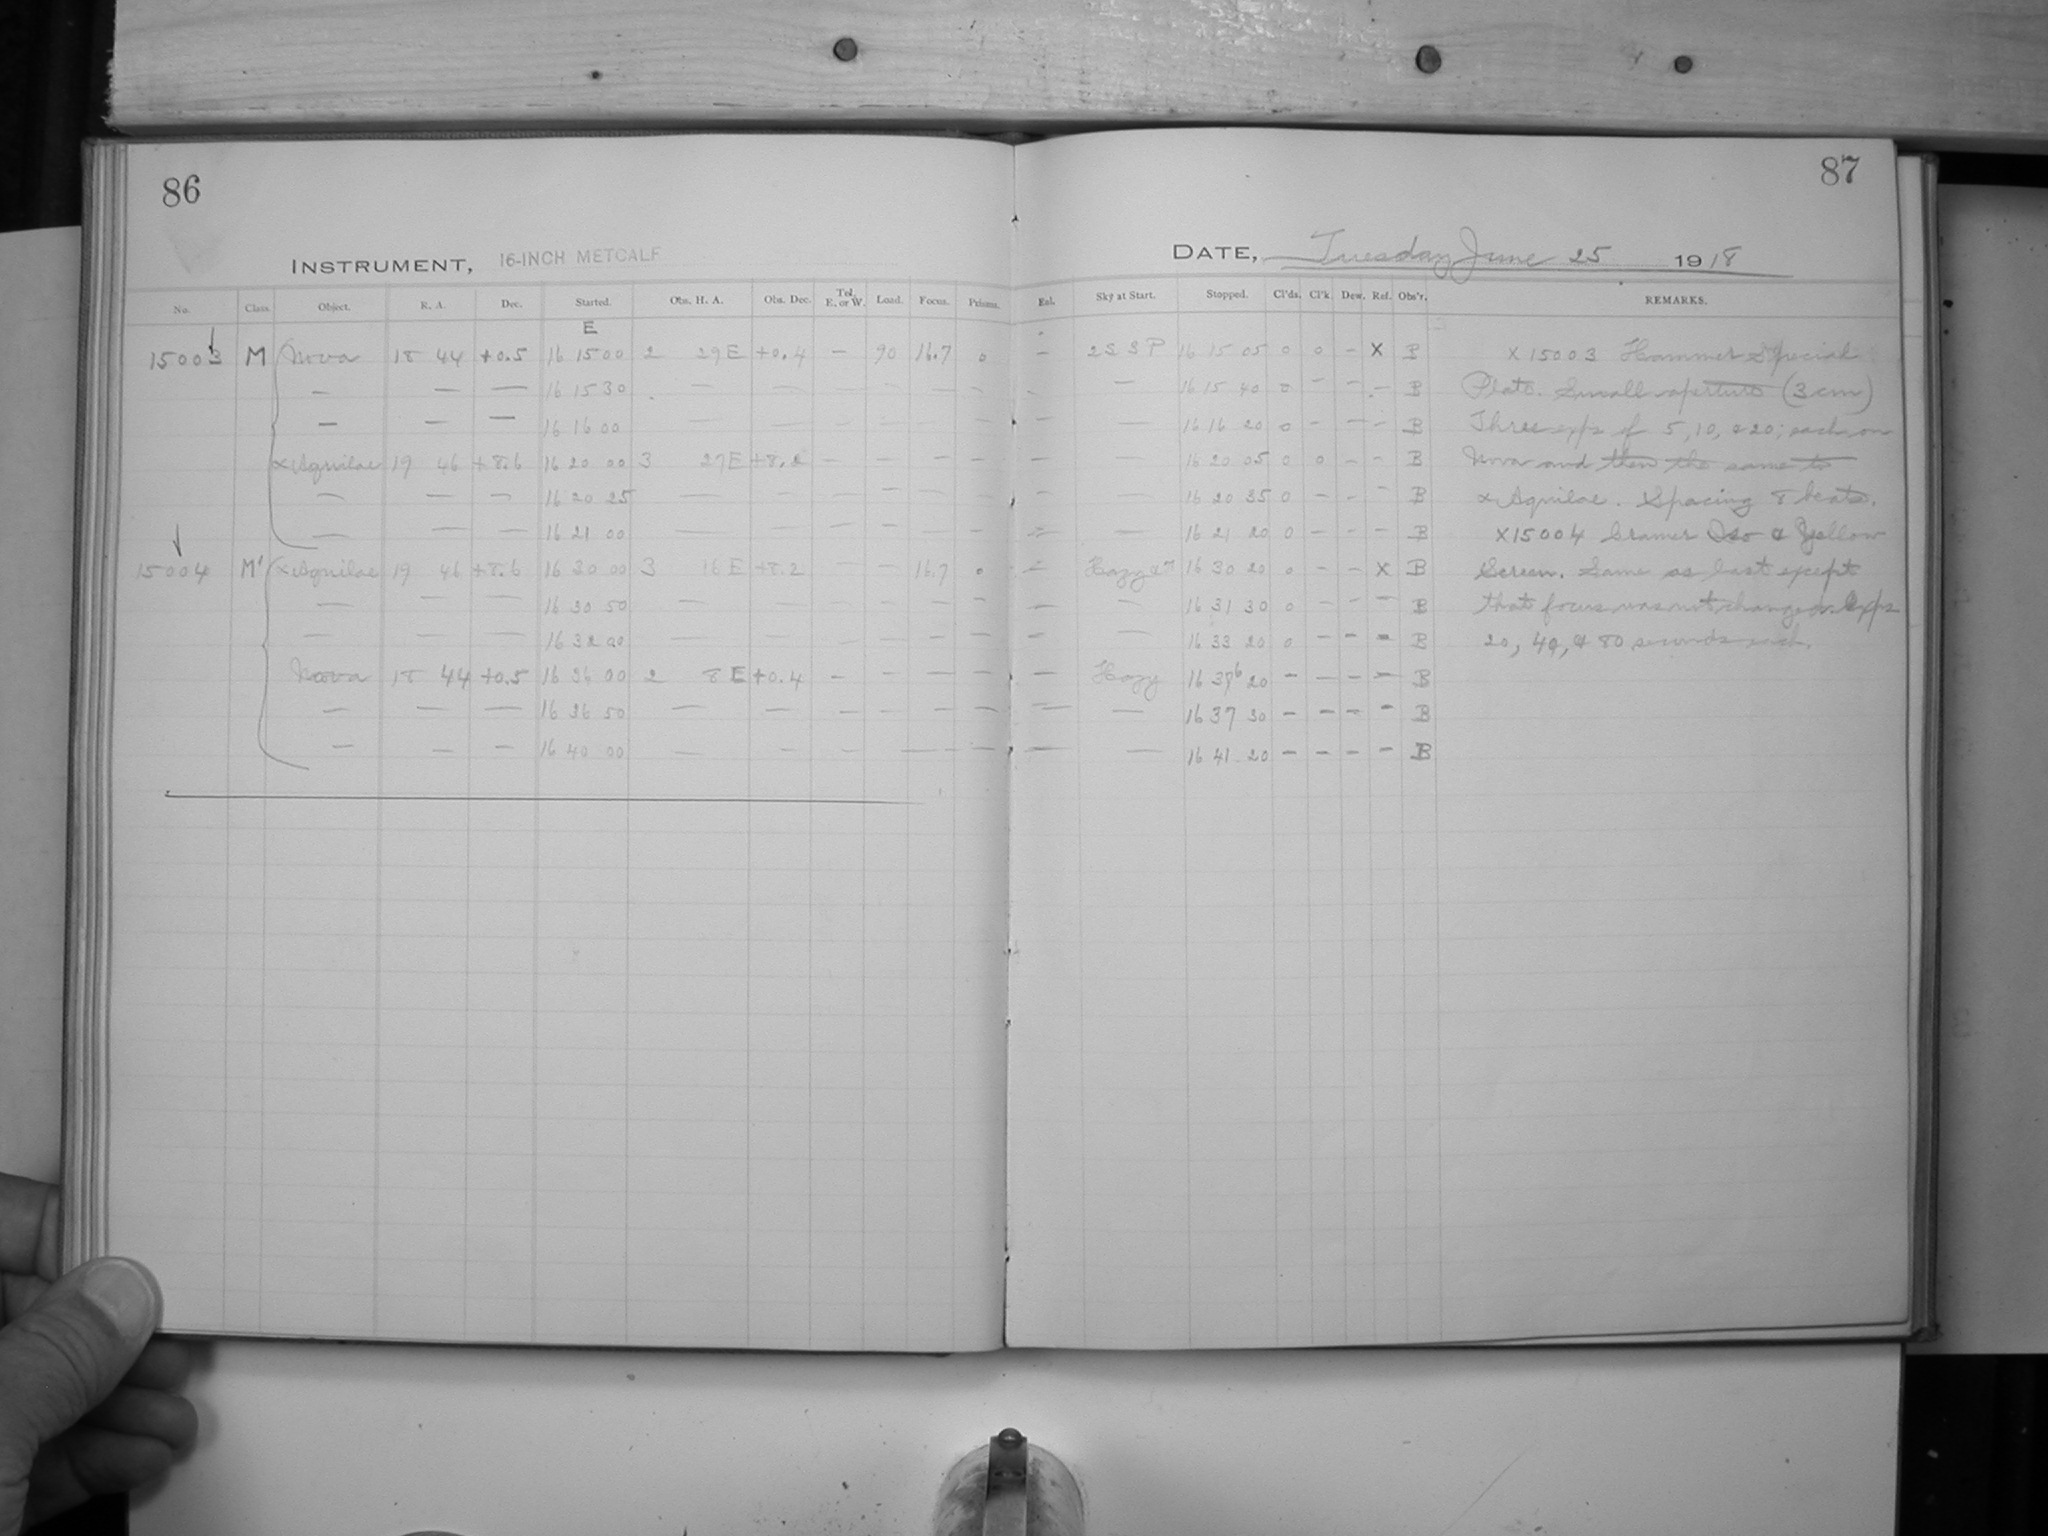 86
INSTRUMENT, 16-INCH METCALF
No. Class. Object. R. A. Dec. Started. Obs. H. A. Obs. Dec. Tel. E. or W. Load. Focus. Prisms.
E
15003 M Nova 18 44 +0.5 16 15 00 2 29 E +0.4 — 90 16.7 0
— — — 16 15 30 — — — — — —
— — — 16 16 00 — — — — — —
α Aquilae 19 46 +8.6 16 20 00 3 27 E +8.2 — — — —
— — — 16 20 25 — — — — — —
— — — 16 21 00 — — — — — —
15004 M' α Aquilae 19 46 +8.6 16 30 00 3 16 E +8.2 — — 16.7 0
— — — 16 30 50 — — — — — —
— — — 16 32 00 — — — — — —
Nova 18 44 +0.5 16 36 00 2 8 E +0.4 — — — —
— — — 16 36 50 — — — — — —
— — — 16 40 00 — — — — — —
87
DATE, Tuesday June 25 1918
Enl. Sky at Start. Stopped. Cl'ds. Cl'k. Dew. Ref. Obs'r. REMARKS.
— 2S 3P 16 15 05 0 0 — X B X 15003 Hammer Special
— — 16 15 40 0 — — — B Plate. Small aperture (3cm)
— — 16 16 20 0 — — — B Three exps of 5, 10, & 20; each on
— — 16 20 05 0 0 — — B Nova and then the same to
— — 16 20 35 0 — — — B α Aquilae. Spacing 8 beats.
— — 16 21 20 0 — — — B X15004 Cramer Iso & Yellow
— Hazy 16 30 20 0 — — X B Screen. Same as last except
— — 16 31 30 0 — — — B that focus was not changed. Exps
— — 16 33 20 0 — — — B 20, 40, & 80 seconds each.
— Hazy 16 36 20 — — — — B
— — 16 37 30 — — — — B
— — 16 41 20 — — — — B